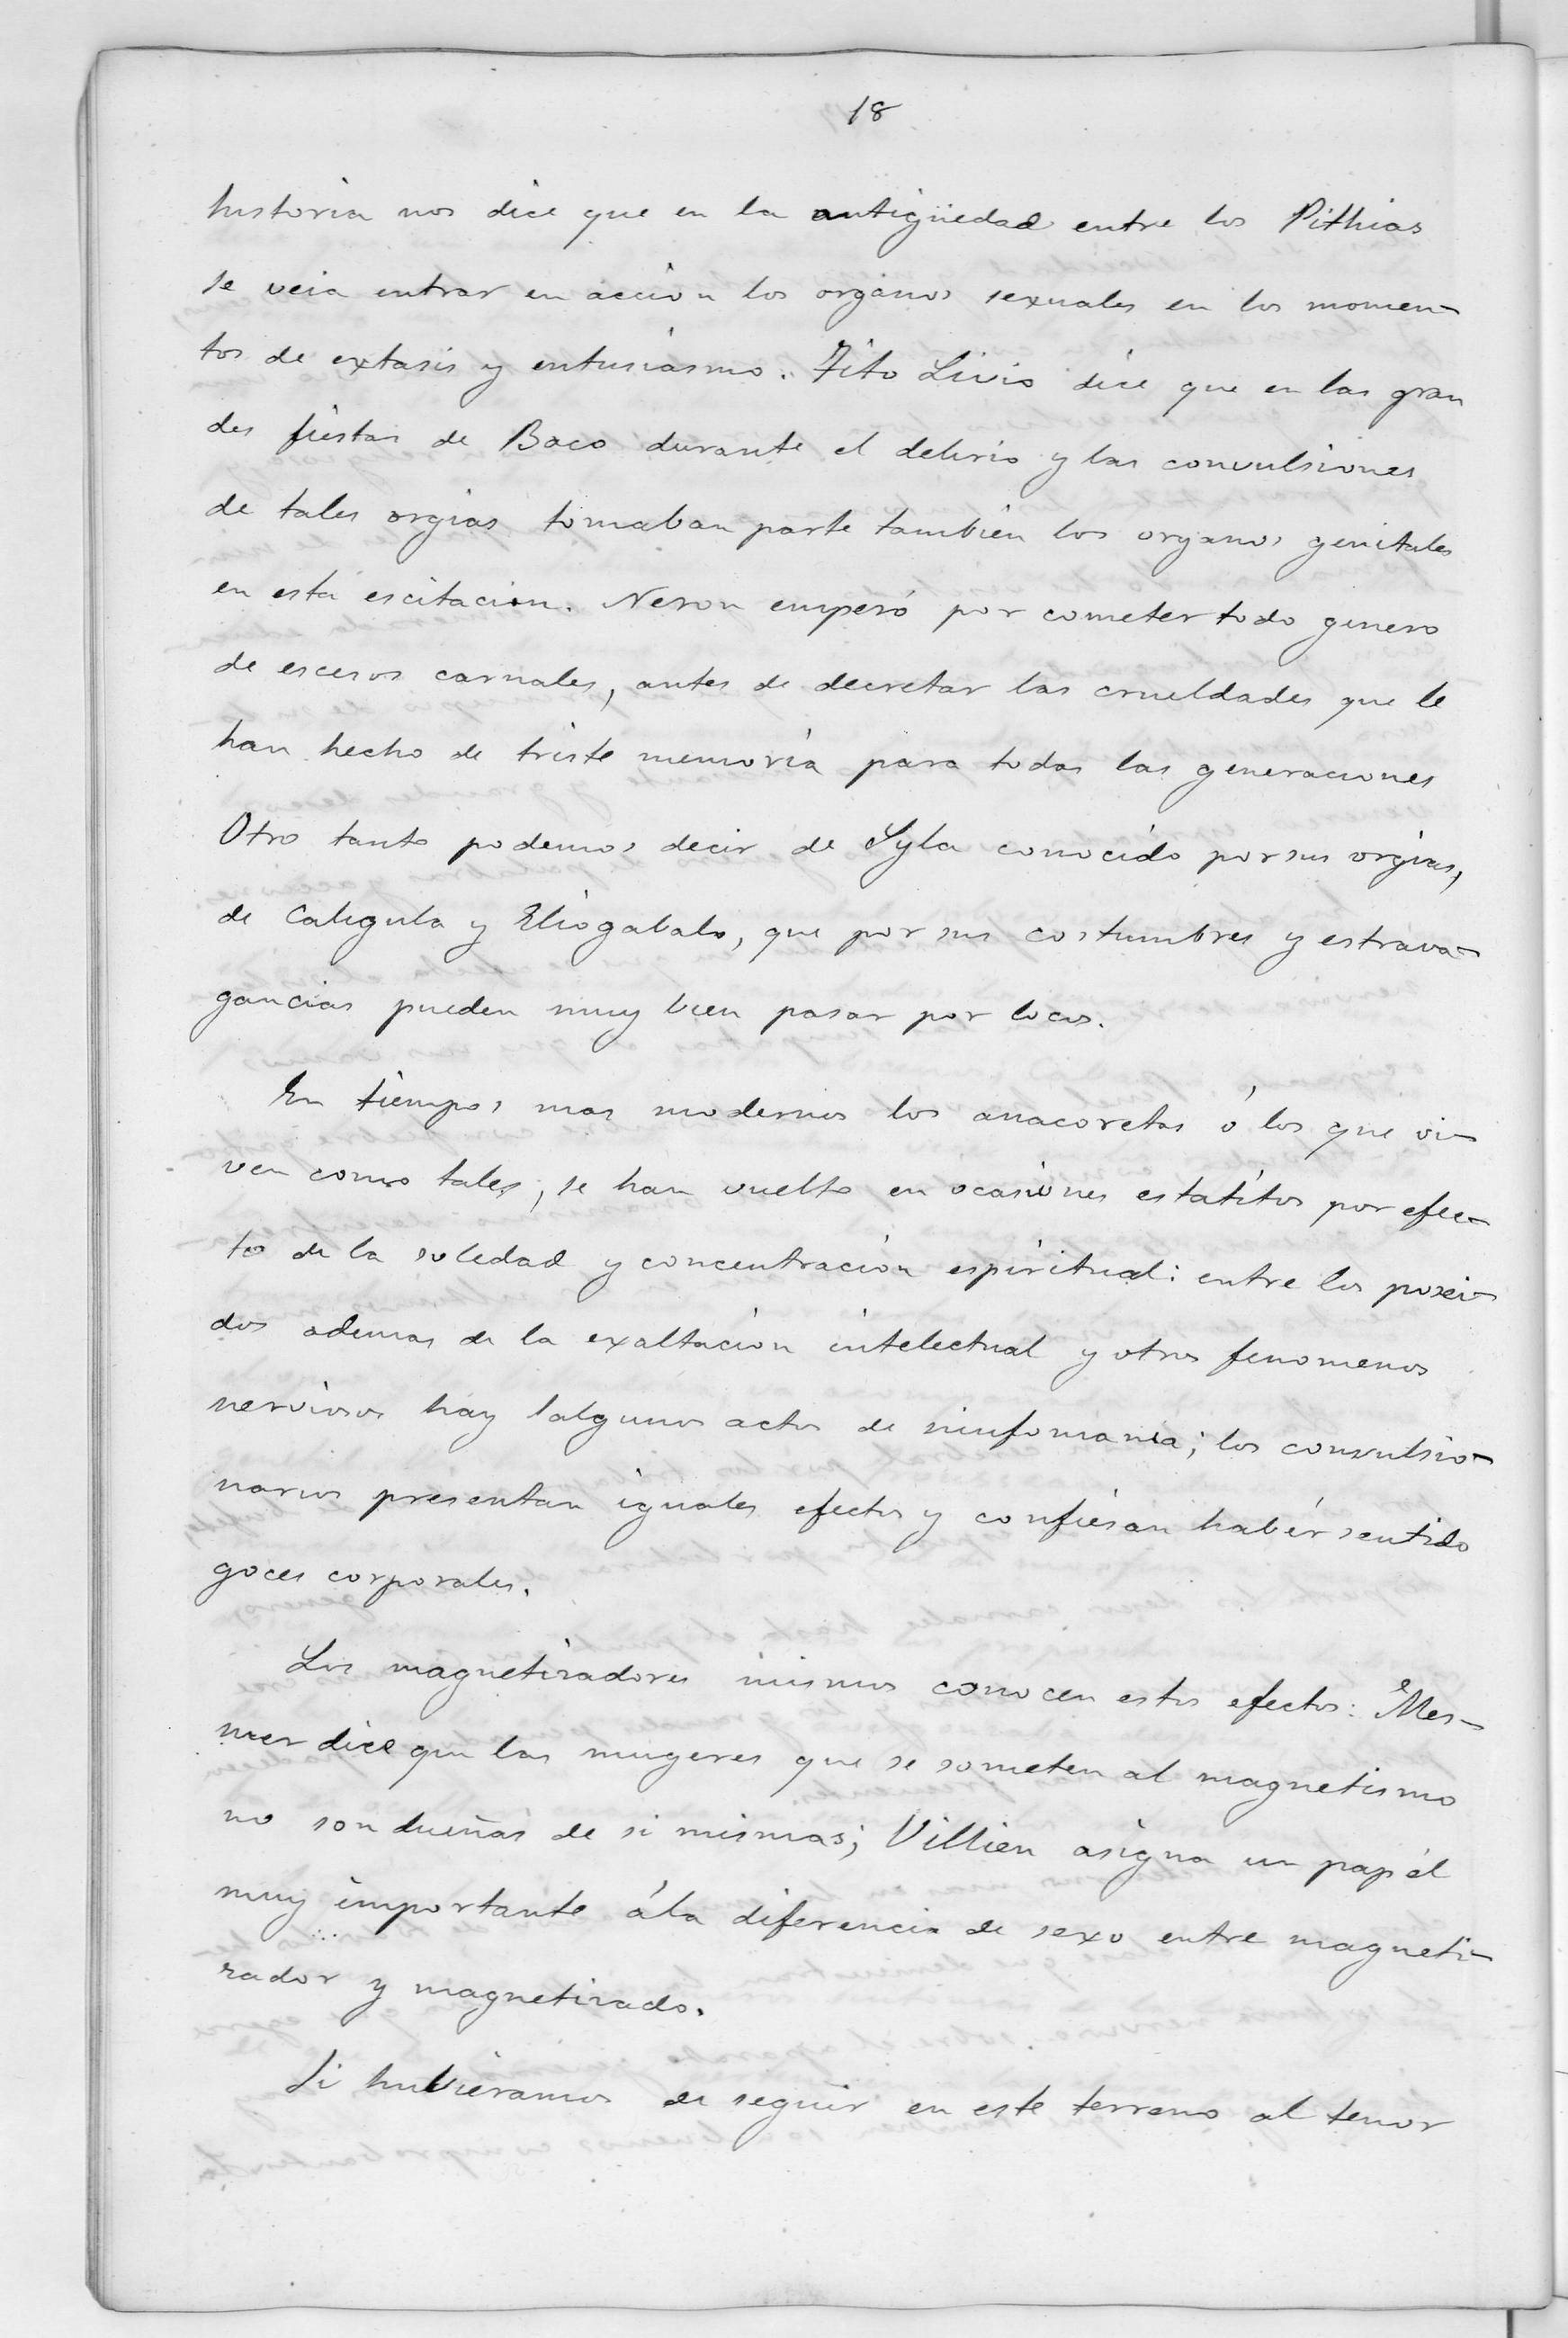 18
historia nos dice que en la antigüedad entre los Pithias
se veia entrar en acción los organos sexuales en los momen-
tos de extasis y entusiasmo. Tito Livio dice que en las gran
des fiestas de Baco durante el delirio y las convulsiones
de tales orgias tomaban parte tambien los organos genitales
en esta escitacion. Neron empezó por cometer todo genero
de escesos carnales, antes de decretar las crueldades que le
han hecho de triste memoria para todas las generaciones
Otro tanto podemos decir de Syla conocido por sus orgias,
de Caligula y Eliogabalo, que por sus costumbres y estrava-
gancias pueden muy bien pasar por locos.
En tiempos mas modernos los anacoretas ó los que vi-
ven como tales, se han vuelto en ocasiones estatitos por efec-
to de la soledad y concentración espiritual: entre los posei-
dos ademas de la exaltación intelectual y otros fenomenos
nerviosos hay algunos actos de ninfomania; los convulsio-
narios presentan iguales efectos y confiesan habér sentido
goces corporales.
Los magnetizadores mismos conocen estos efectos: Mes-
mer dice que las mugeres que se someten al magnetismo
no son dueñas de si mismas; Villien asigna un papél
muy importante á la diferencia de sexo entre magneti-
zador y magnetizado.
Si hubieramos de seguir en este terreno al tenor